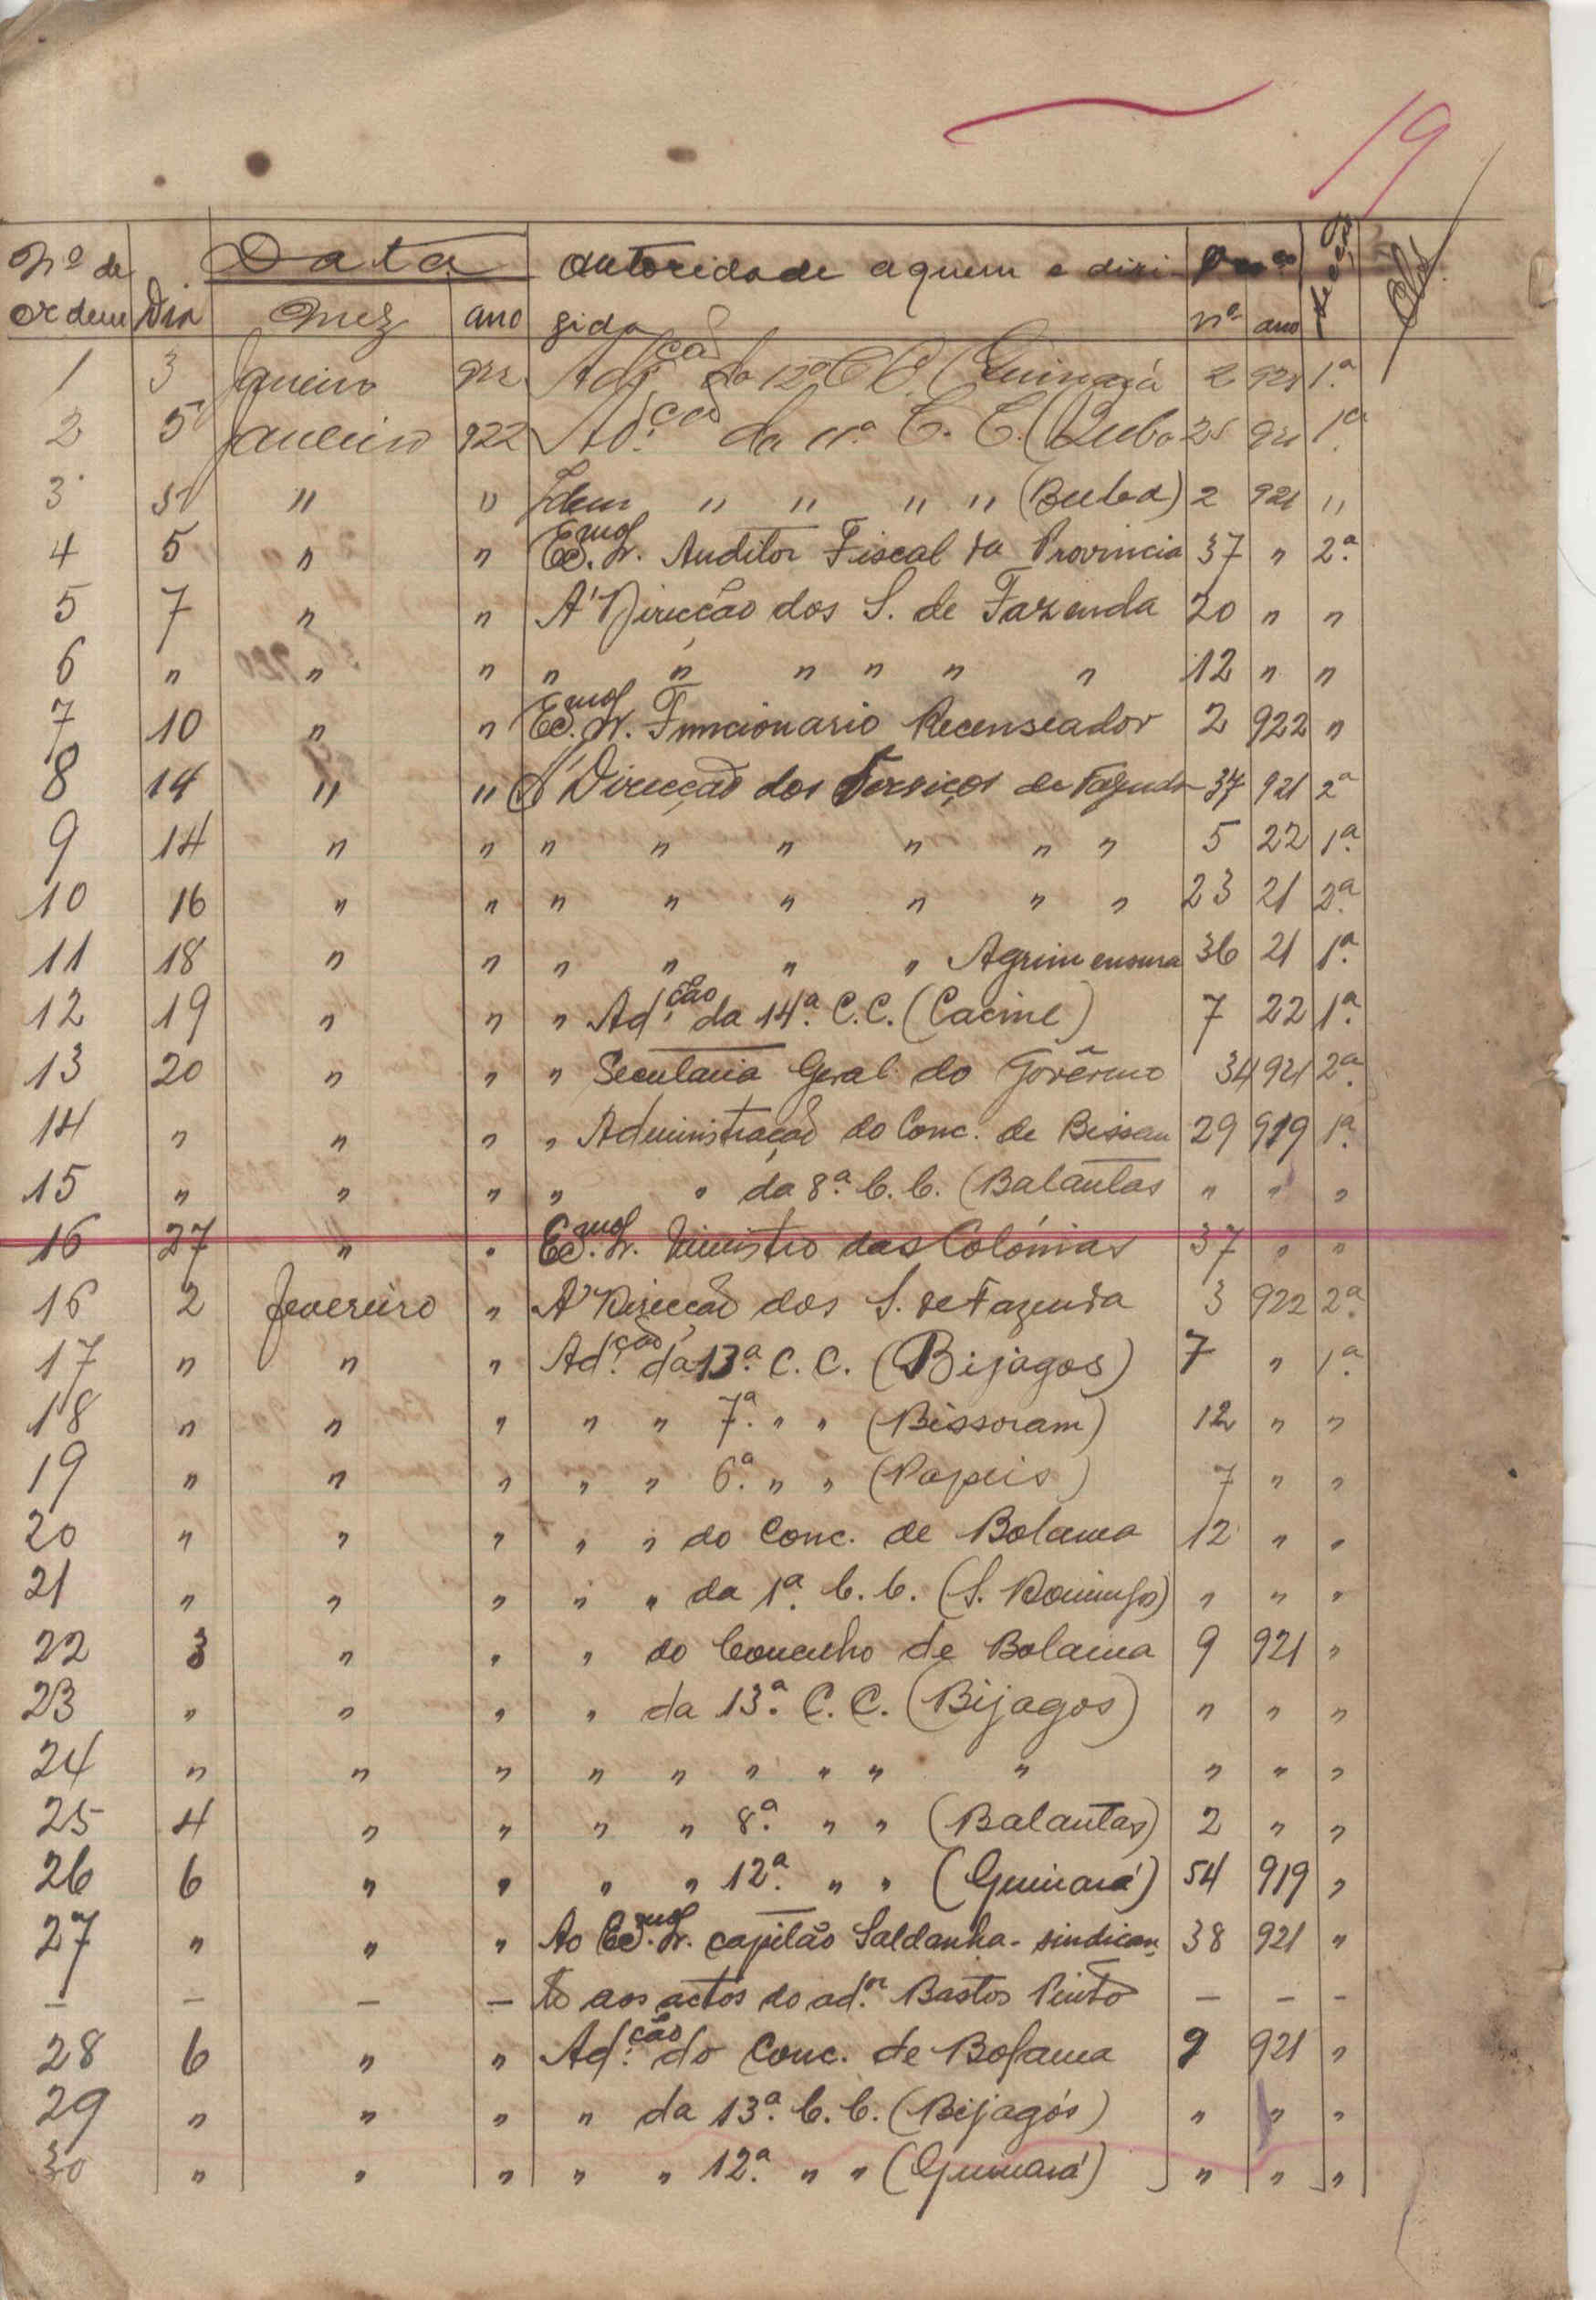 19
Nº de ordem Data Dia Mez ano Autoridade a quem é dirigida nº ano Secção
1 3 Janeiro 922 Ad.ção da 12ª C. C. (Guinará 2 921 1ª
2 5 Janeiro 922 Ad.ção da 11ª C. C. (Buba 25 921 1ª
3 5 " " Idem " " " " (Buba) 2 921 "
4 5 " " Ex.mo Sr. Auditor Fiscal da Provincia 37 " 2ª
5 7 " " A' Direcção dos S. de Fazenda 20 " "
6 " " " " " " " " " 12 " "
7 10 " " Ex.mo Sr. Funcionario Recenseador 2 922 "
8 14 " " A' Direcção dos Serviços de Fazenda 37 921 2ª
9 14 " " " " " " " " 5 22 1ª
10 16 " " " " " " " " 23 21 2ª
11 18 " " " " " " Agrimensura 36 21 1ª
12 19 " " " Ad.ção da 14ª C.C. (Cacine) 7 22 1ª
13 20 " " " Secretaria Geral do Govêrno 34 921 2ª
14 " " " " Administração do Conc. de Bissau 29 919 1ª
15 " " " " " da 8ª C. C. (Balantas " " "
16 27 " " Ex.mo Sr. Ministro das Colónias 37 " "
16 2 Fevereiro " A' Direcção dos S. de Fazenda 3 922 2ª
17 " " " Ad.ção da 13ª C. C. (Bijagos) 7 " 1ª
18 " " " " " 7ª " " (Bissoram) 12 " "
19 " " " " " 6ª " " (Papeis) 7 " "
20 " " " " " do Conc. de Bolama 12 " "
21 " " " " " da 1ª C. C. (S. Domingos) " " "
22 3 " " " do Concelho de Bolama 9 921 "
23 " " " " da 13ª C. C. (Bijagos) " " "
24 " " " " " " " " " " " "
25 4 " " " " 8ª " " (Balantas) 2 " "
26 6 " " " " 12ª " " (Guinará) 54 919 "
27 " " " Ao Ex.mo Sr. capitão Saldanha - sindican- 38 921 "
— — — — te aos actos do ad.or Bastos Pinto — — —
28 6 " " Ad.ção do Conc. de Bolama 9 921 "
29 " " " " da 13ª C. C. (Bijagós) " " "
30 " " " " " 12ª " " (Guinará) " " "